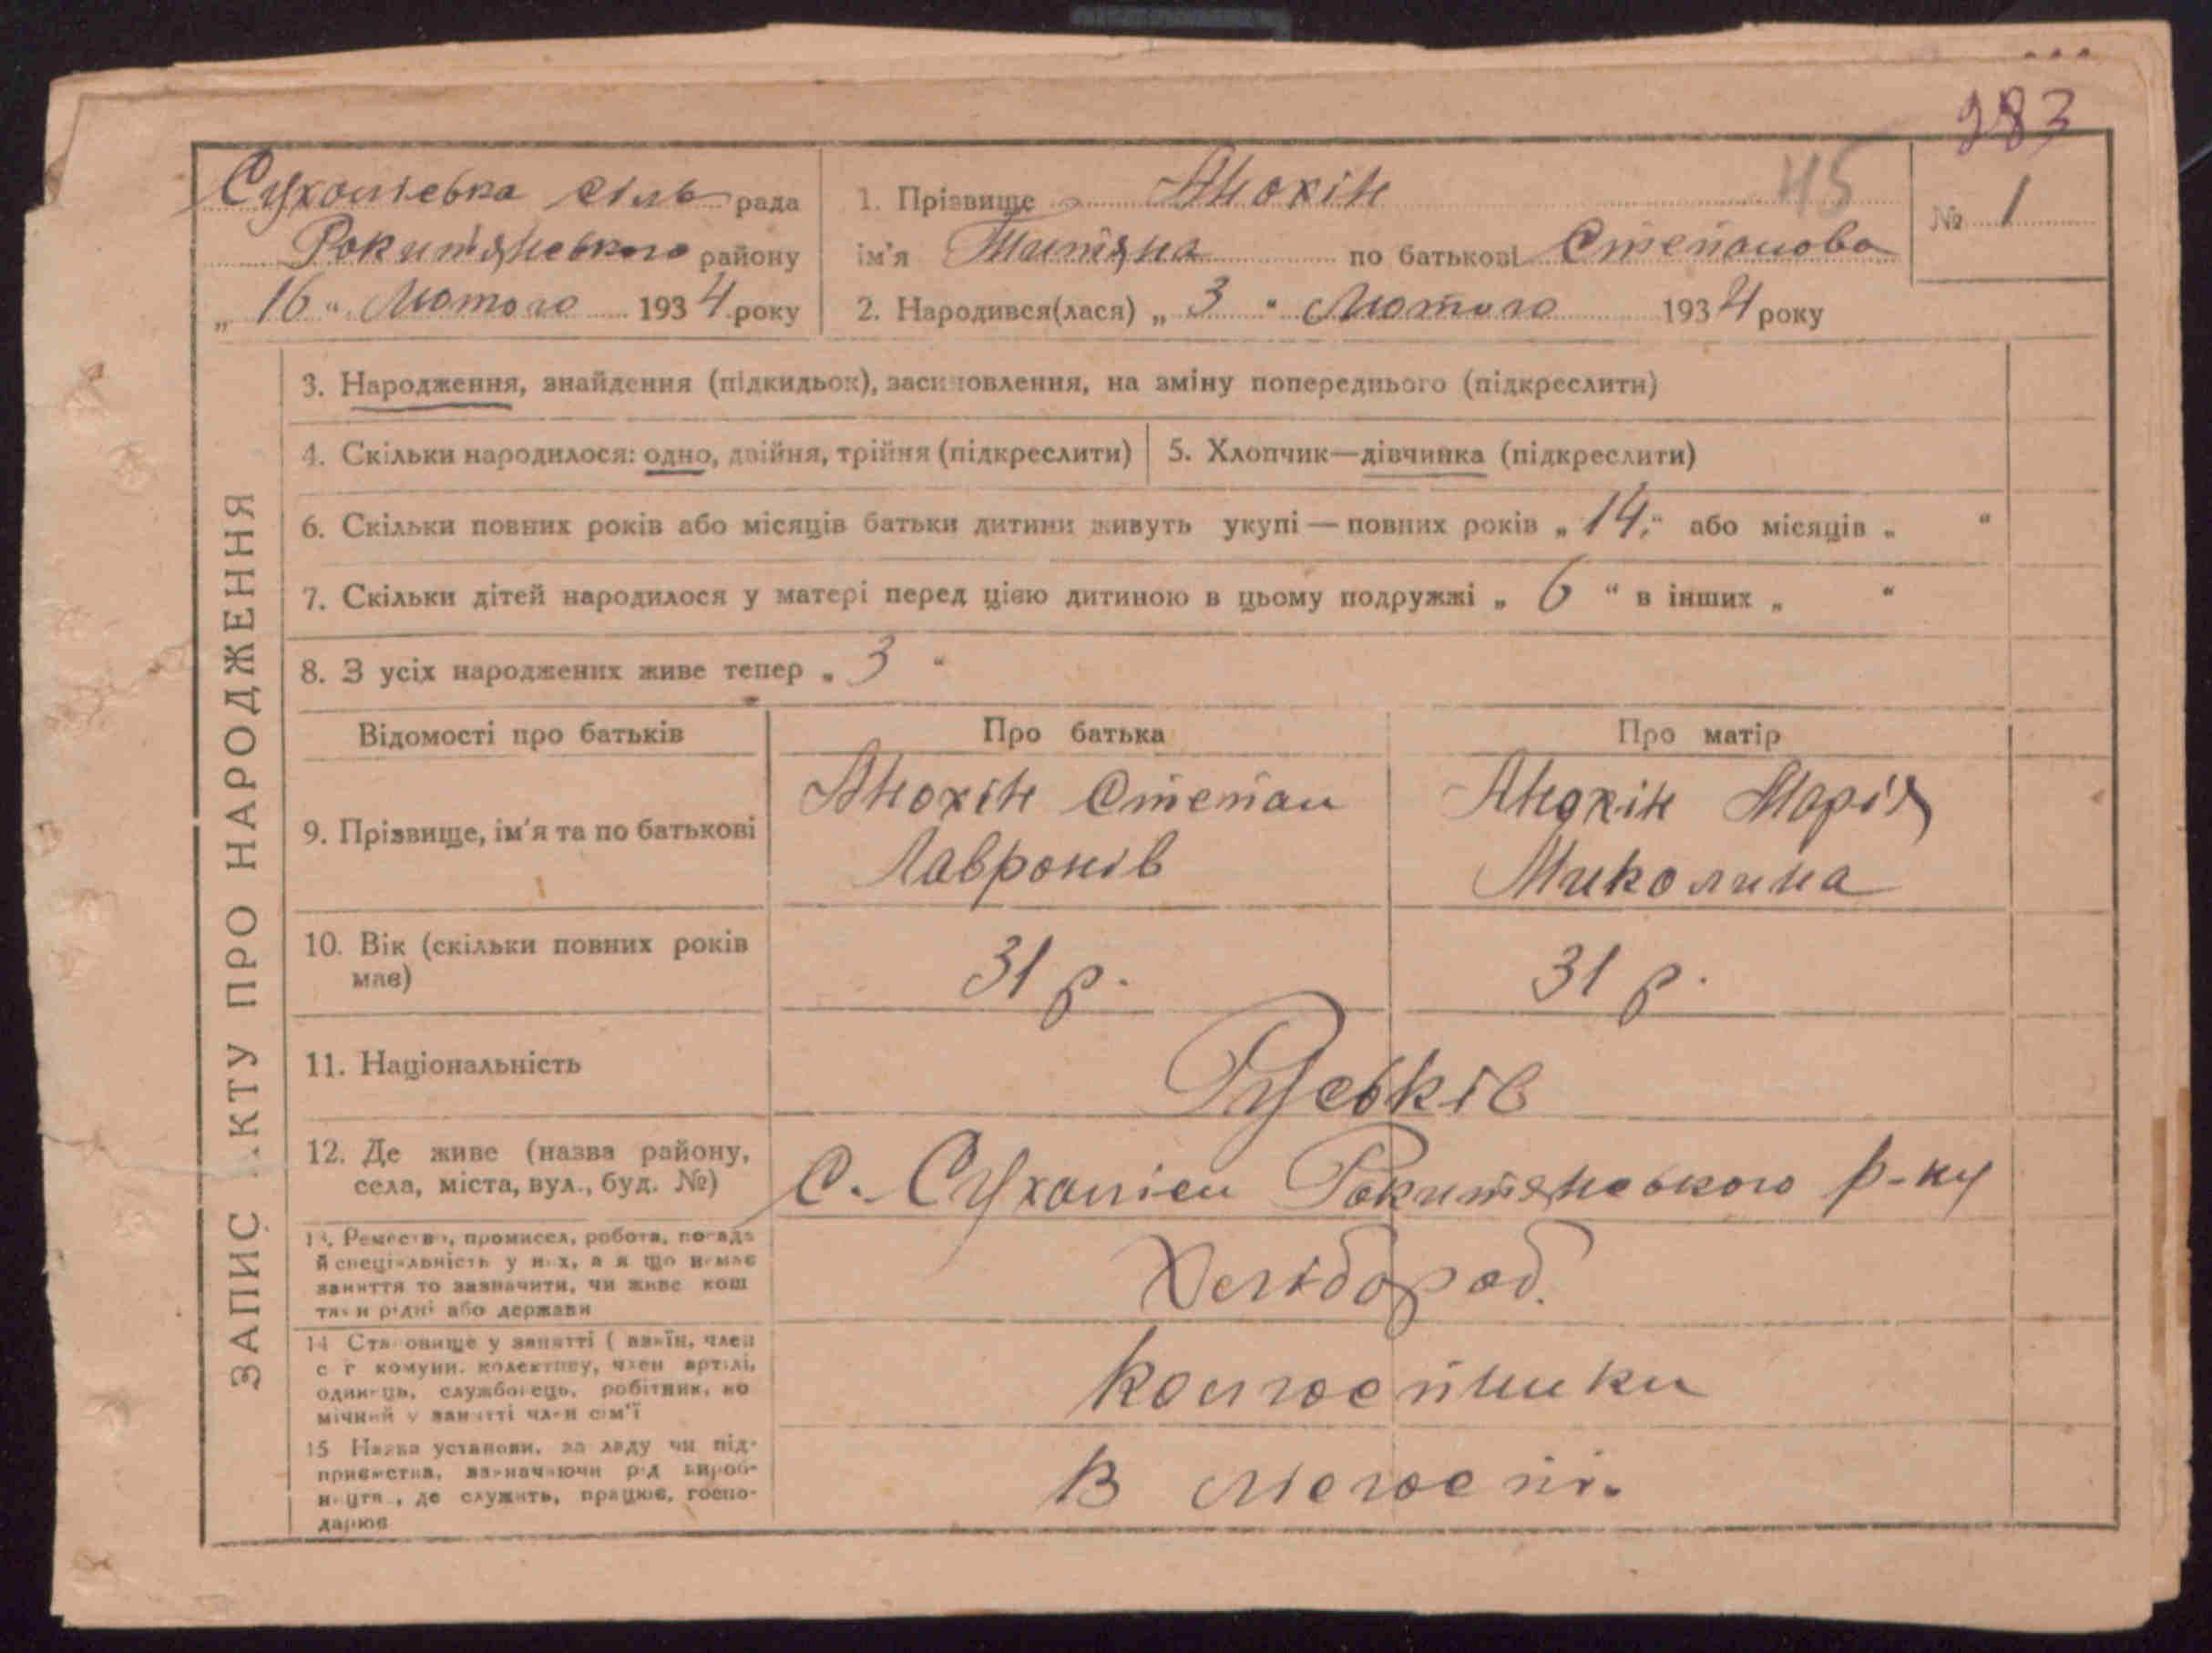 983
45
Сухолієвка сіль рада
Рокитянського району
„16“ Лютого 1934 року
1. Прізвище Анохін
ім'я Титяна по батькові Степанова
№ 1
2. Народився(лася) „3“ Лютого 1934 року
ЗАПИС .КТУ ПРО НАРОДЖЕННЯ
3. Народження, знайдення (підкидьок), засиновлення, на зміну попереднього (підкреслити)
4. Скільки народилося: одно, двійня, трійня (підкреслити)
5. Хлопчик—дівчинка (підкреслити)
6. Скільки повних років або місяців батьки дитини живуть укупі — повних років „14“ або місяців „ “
7. Скільки дітей народилося у матері перед цією дитиною в цьому подружжі „6“ в інших „ “
8. З усіх народжених живе тепер „3“
Відомості про батьків
Про батька
Про матір
9. Прізвище, ім'я та по батькові
Анохін Степан
Лавронів
Анохін Марія
Миколина
10. Вік (скільки повних років
має)
31 р.
31 р.
11. Національність
Руськів
12. Де живе (назва району,
села, міста, вул., буд. №)
С. Рокитянського р-ну
13. Ремество, промисел, робота, посада
й спеціяльність у них, а якщо немає
заняття то зазначити, чи живе кош
тями рідні або держави
Хлібороб.
14 Становище у занятті ( азяїн, член
с г комуни, колективу, член артілі,
одинець, службовець, робітник, по
мічний у занятті член сім'ї
Колгоспники
15 Назва установи, закладу чи під-
приємства, зазначаючи рід вироб-
ництва, де служить, працює, госпо-
дарює
В